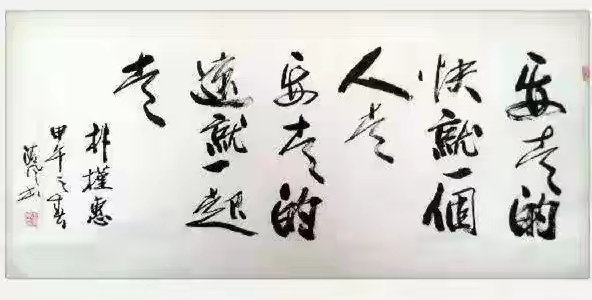 要走的
快就一個
人走
要走的
遠就一起
走
朴槿惠
甲午之春